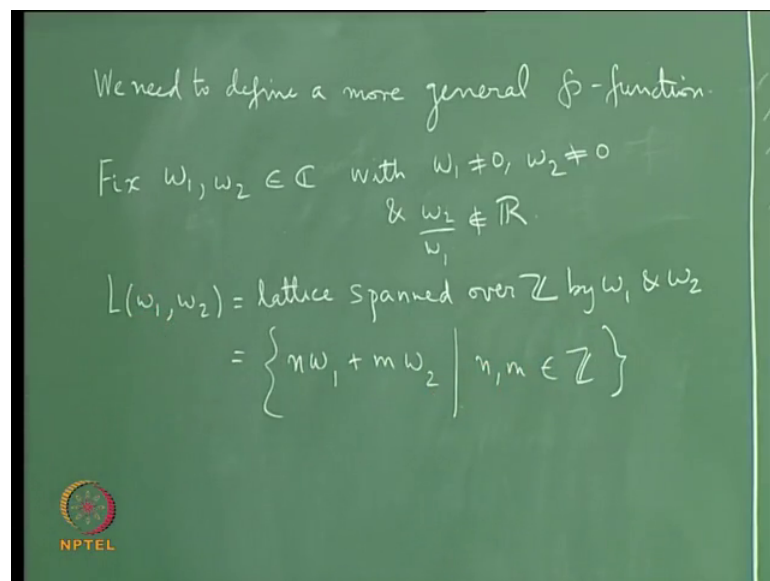 We need to define a more general ℘-function.
Fix ω₁, ω₂ ∈ ℂ with ω₁ ≠ 0, ω₂ ≠ 0
& ω₂/ω₁ ∉ ℝ.
L(ω₁, ω₂) = lattice spanned over ℤ by ω₁ & ω₂
= { nω₁ + mω₂ | n, m ∈ ℤ }
NPTEL